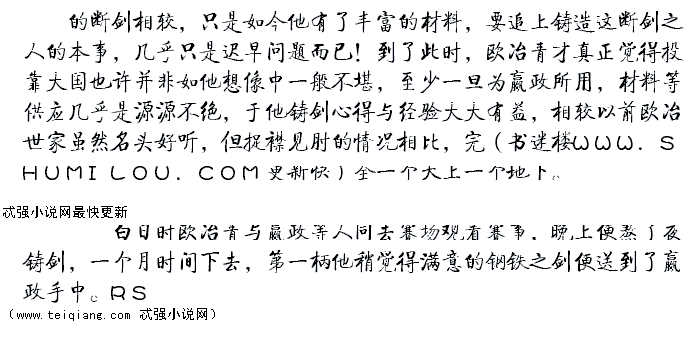 的断剑相较，只是如今他有了丰富的材料，要追上铸造这断剑之
人的本事，几乎只是迟早问题而已！到了此时，欧冶青才真正觉得投
靠大国也许并非如他想像中一般不堪，至少一旦为嬴政所用，材料等
供应几乎是源源不绝，于他铸剑心得与经验大大有益，相较以前欧冶
世家虽然名头好听，但捉襟见肘的情况相比，完（书迷楼ＷＷＷ．Ｓ
ＨＵＭＩＬＯＵ．ＣＯＭ更新快）全一个天上一个地下。
忒强小说网最快更新
白日时欧冶青与嬴政等人同去赛场观看赛事，晚上便熬了夜
铸剑，一个月时间下去，第一柄他稍觉得满意的钢铁之剑便送到了嬴
政手中。ＲＳ
（www.teiqiang.com 忒强小说网）